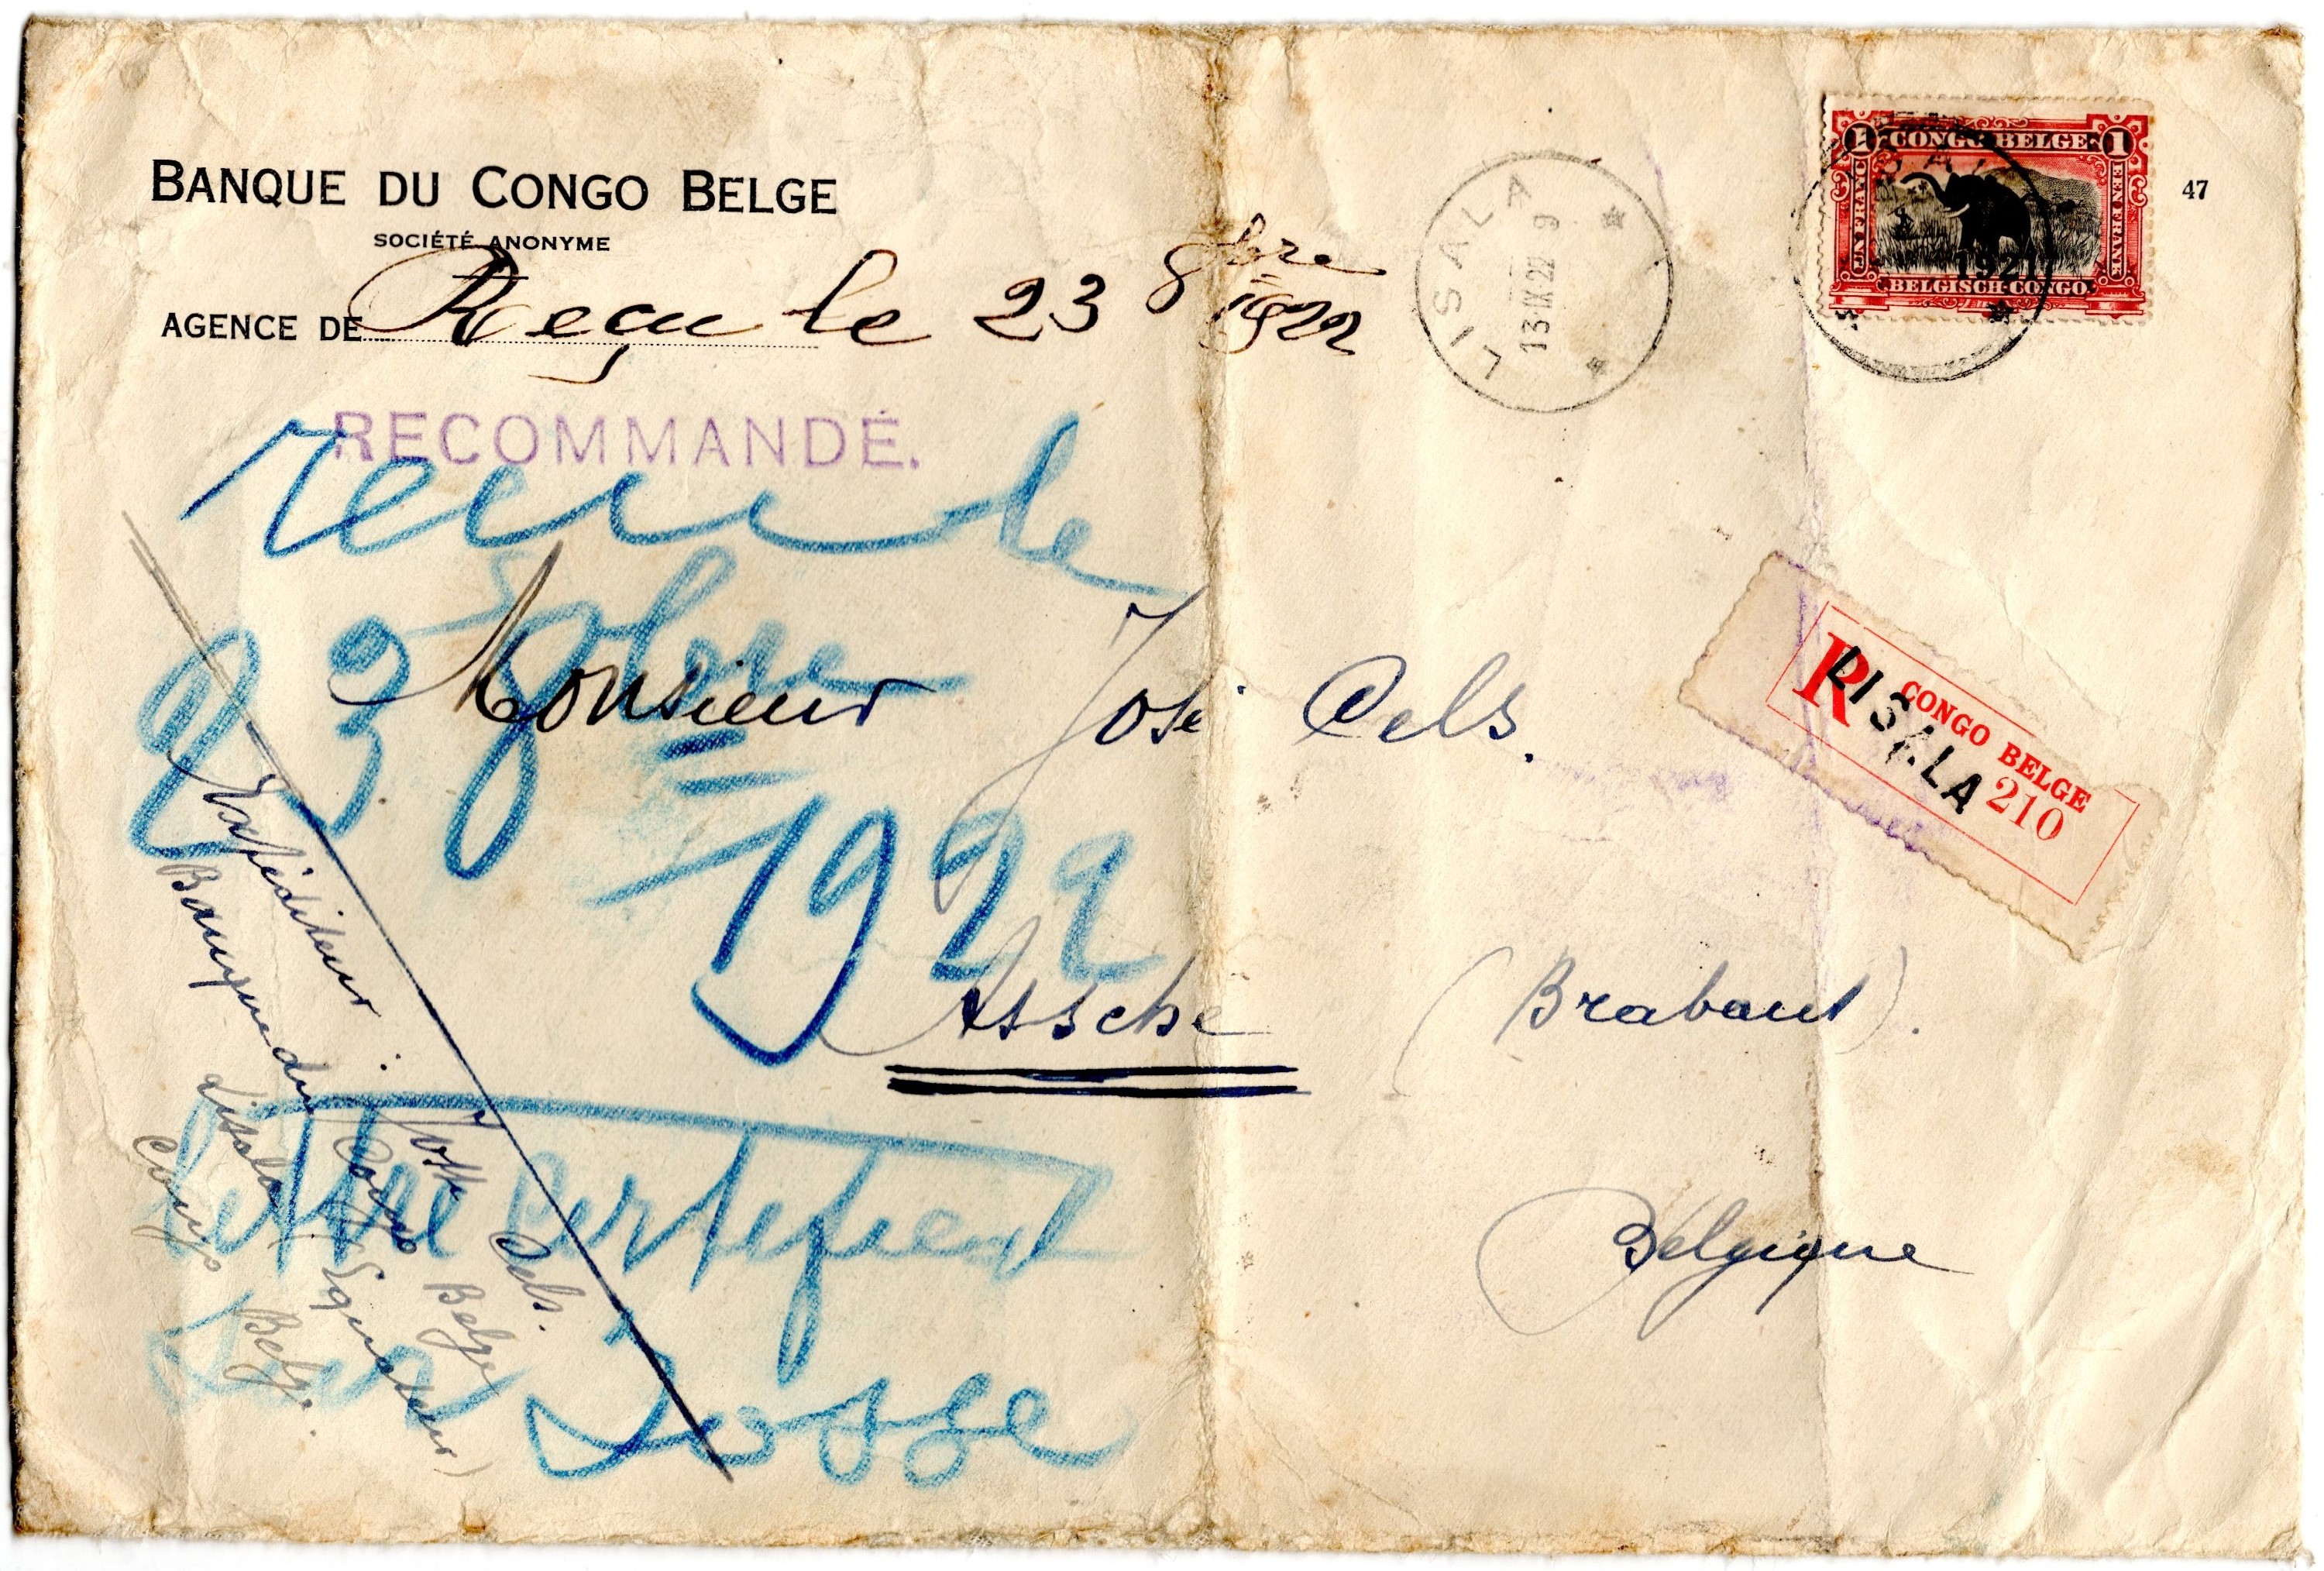 BANQUE DU CONGO BELGE
SOCIÉTÉ ANONYME
AGENCE DE Reçu le 23 8bre 1922
LISALA
13 IX 22 9
1 CONGO BELGE 1
UN FRANC
EEN FRANK
1921
BELGISCH-CONGO
47
RECOMMANDÉ.
recu le
23 8bre
1922
Monsieur José Cels.
R CONGO BELGE
LISALA 210
Assche (Brabant).
Belgique
Expéditeur : Joss Cels.
Banque du Congo Belge
Lisala (Equateur)
Congo Belge.
Lettre
Josse